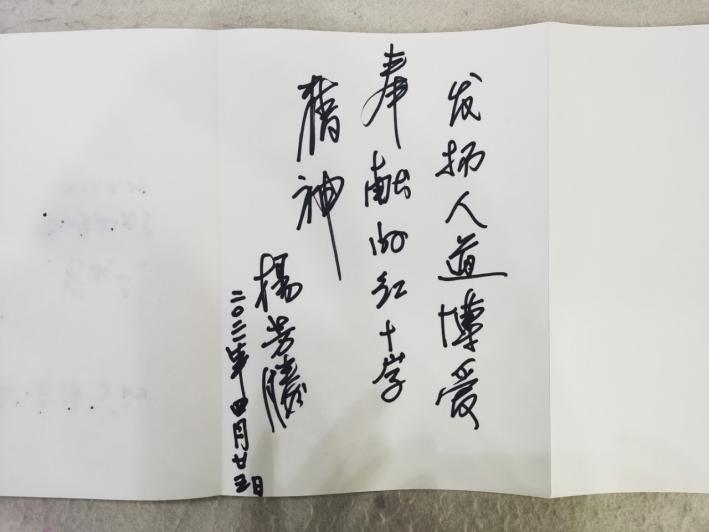 发扬人道博爱
奉献的红十字
精神
楊芳勝
二〇二二年四月廿三日